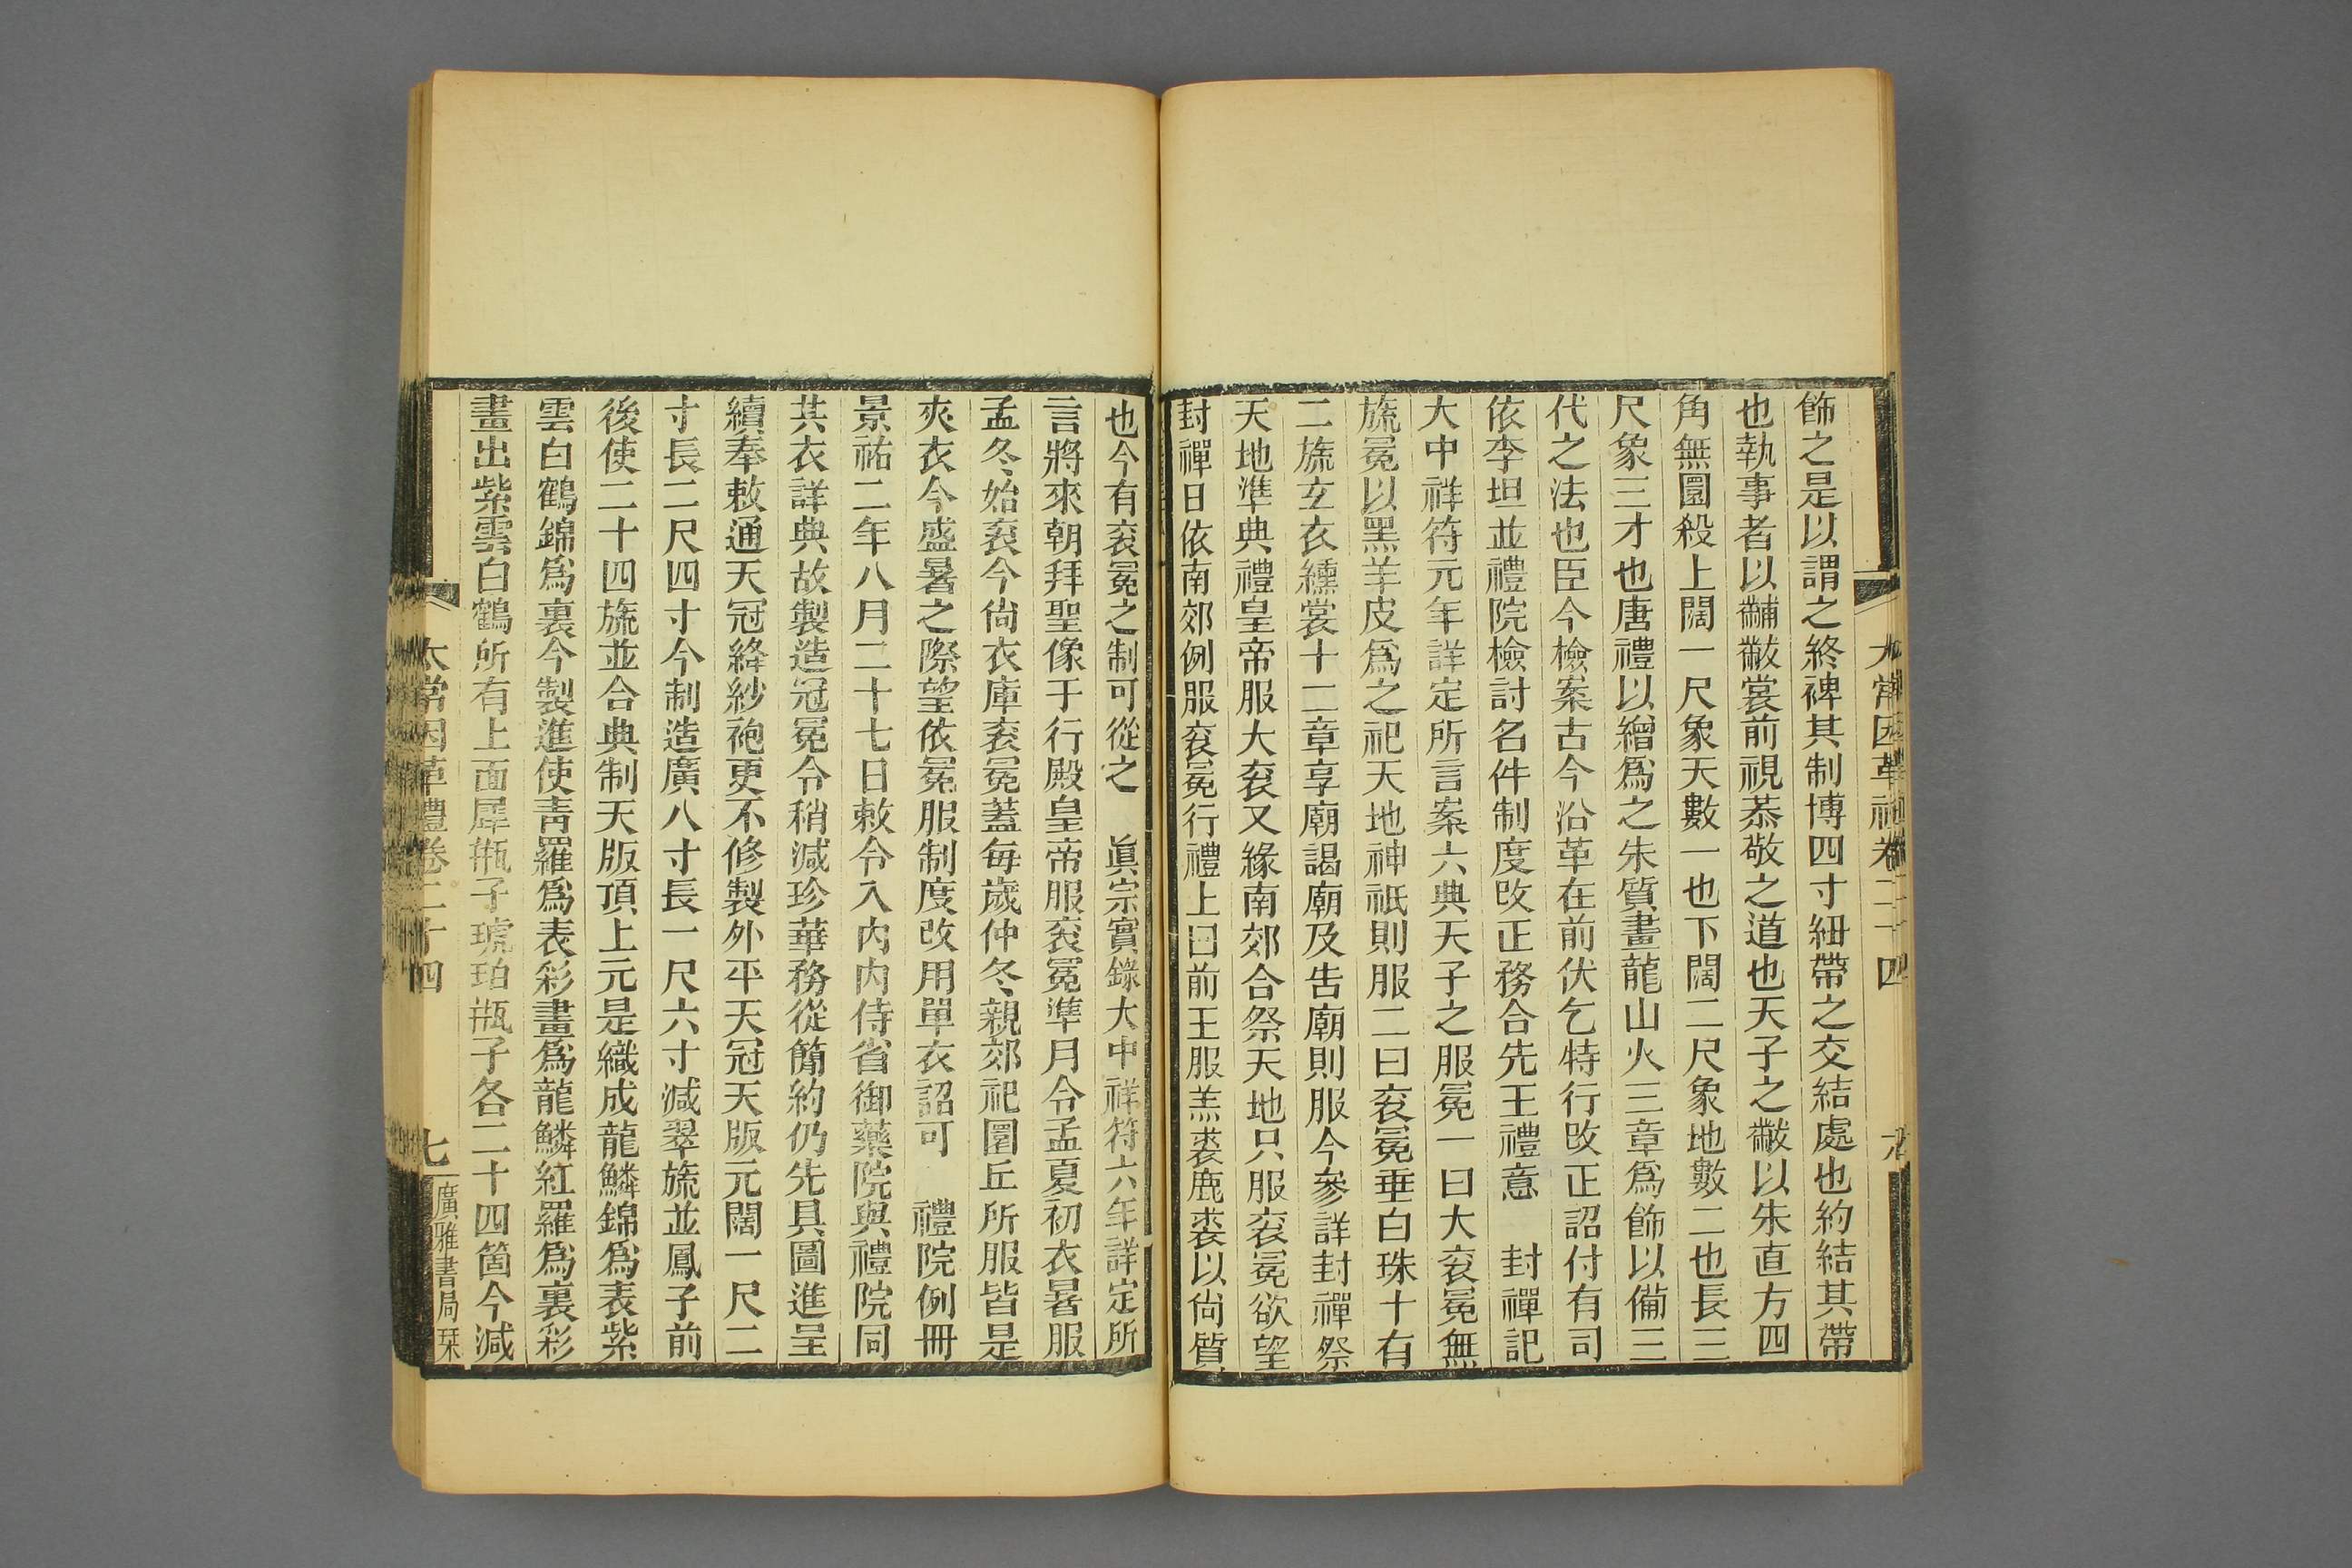 太常因革禮卷二十四
六
飾之是以謂之終裨其制博四寸紐帶之交結處也約結其帶
也執事者以黼黻裳前視恭敬之道也天子之黻以朱直方四
角無圜殺上闊一尺象天數一也下闊二尺象地數二也長三
尺象三才也唐禮以繒爲之朱質畫龍山火三章爲飾以備三
代之法也臣今檢案古今沿革在前伏乞特行改正詔付有司
依李坦並禮院檢討名件制度改正務合先王禮意　封禪記
大中祥符元年詳定所言案六典天子之服冕一曰大衮冕無
旒冕以黑羊皮爲之祀天地神祇則服二曰衮冕垂白珠十有
二旒玄衣纁裳十二章享廟謁廟及告廟則服今參詳封禪祭
天地準典禮皇帝服大衮又緣南郊合祭天地只服衮冕欲望
封禪日依南郊例服衮冕行禮上曰前王服羔裘鹿裘以尙質
也今有衮冕之制可從之　眞宗實錄大中祥符六年詳定所
言將來朝拜聖像于行殿皇帝服衮冕準月令孟夏初衣暑服
孟冬始衮今尙衣庫衮冕蓋每歲仲冬親郊祀圜丘所服皆是
夾衣今盛暑之際望依冕服制度改用單衣詔可　禮院例冊
景祐二年八月二十七日敕令入内内侍省御藥院與禮院同
共衣詳典故製造冠冕令稍減珍華務從簡約仍先具圖進呈
續奉敕通天冠絳紗袍更不修製外平天冠天版元闊一尺二
寸長二尺四寸今制造廣八寸長一尺六寸減翠旒並鳳子前
後使二十四旒並合典制天版頂上元是織成龍鱗錦爲表紫
雲白鶴錦爲裏今製進使靑羅爲表彩畫爲龍鱗紅羅爲裏彩
畫出紫雲白鶴所有上面犀甁子琥珀甁子各二十四箇今減
太常因革禮卷二十四
七
廣雅書局栞